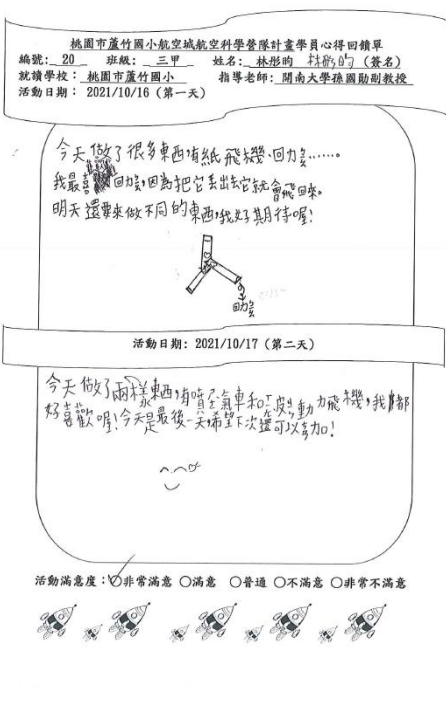 桃園市蘆竹國小航空城航空科學營隊計畫學員心得回饋單
編號: 20 班級: 三甲 姓名: 林彤昀 林彤昀 (簽名)
就讀學校: 桃園市蘆竹國小 指導老師: 開南大學孫國勛副教授
活動日期: 2021/10/16 (第一天)
今天做了很多東西,有紙飛機、回力ㄅㄧㄠ……。
我最喜 回力ㄅㄧㄠ,因為把它丟出去它就會飛回來。
明天還要來做不同的東西,我好期待喔!
回力ㄅㄧㄠ
活動日期: 2021/10/17 (第二天)
今天做了兩樣東西,有噴ㄑㄧˋ氣車和橡皮ㄐㄧㄣ動力飛機,我都
好喜歡喔!今天是最後一天,希望下次還可以參加!
活動滿意度: 非常滿意 滿意 普通 不滿意 非常不滿意